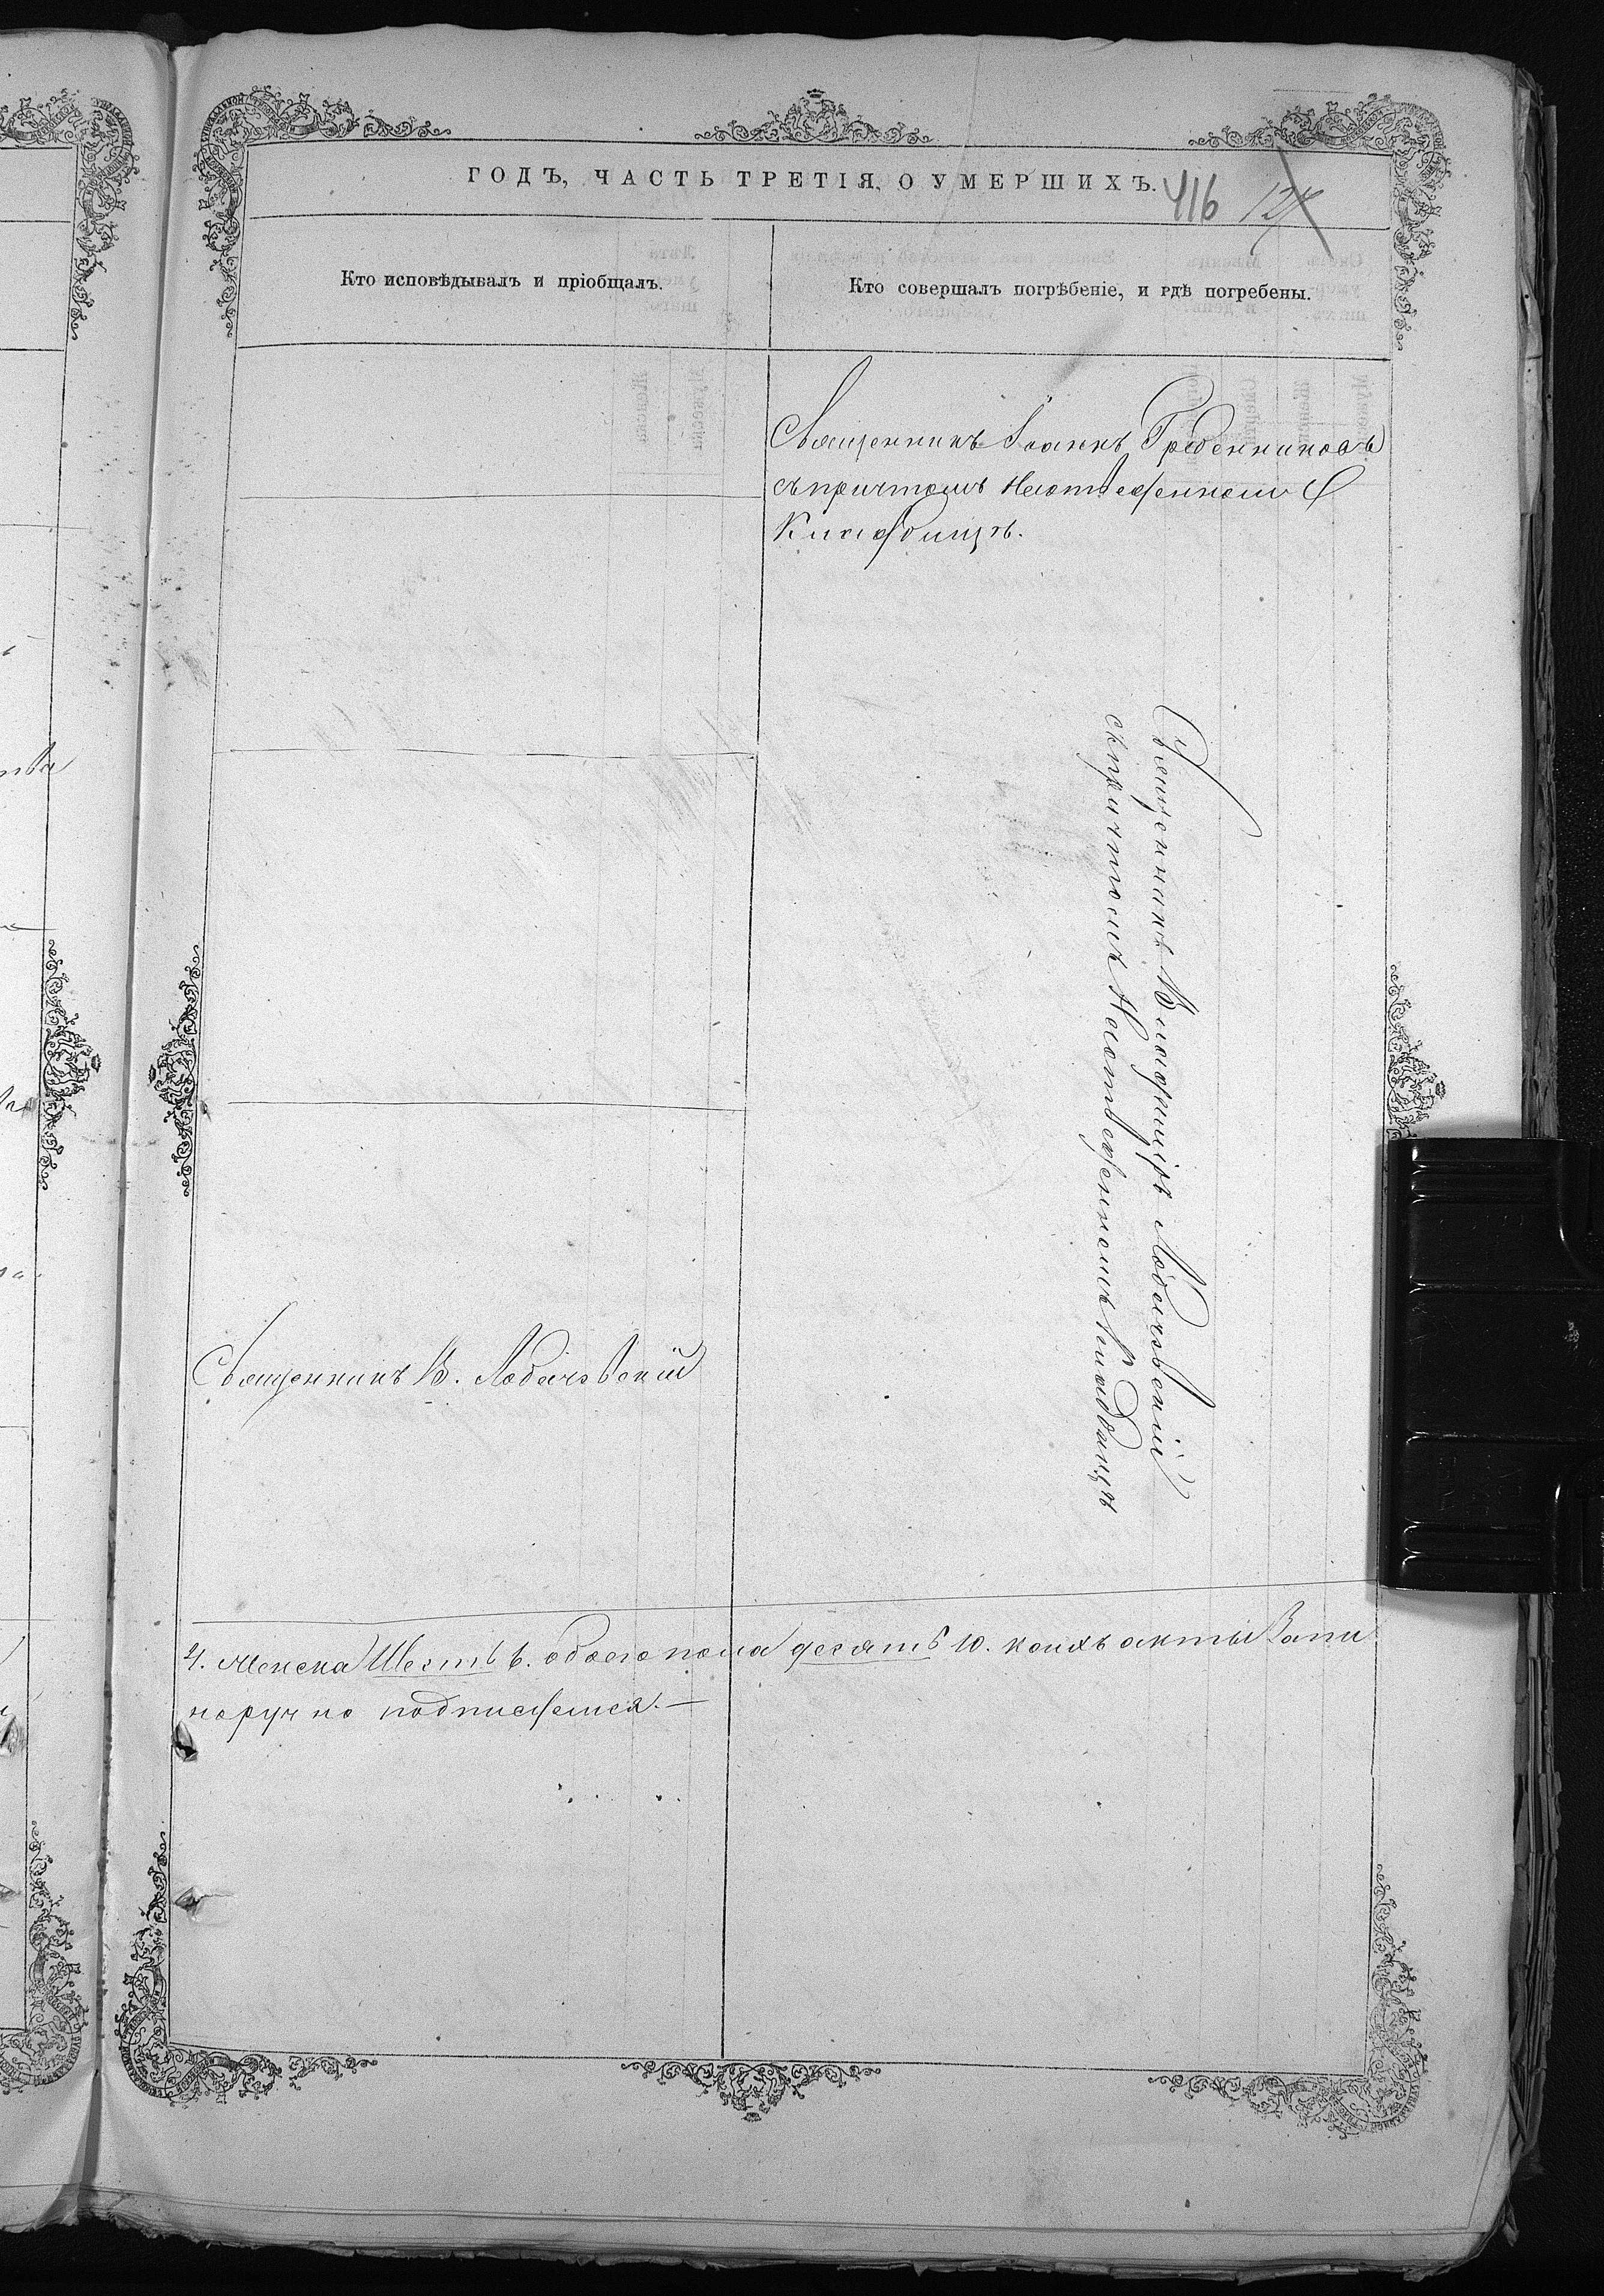 ГОДЪ, ЧАСТЬ ТРЕТІЯ, О УМЕРШИХЪ.
416 127
Кто исповѣдывалъ и пріобщалъ.
Кто совершалъ погрѣбеніе, и гдѣ погребены.
Священникъ Іоаннъ Гребенниковъ
съ причтомъ на отведенном
Кладбищѣ.
Священникъ Владиміръ Лобачевскій
съ причтомъ на отведенномъ кладбищѣ
Священникъ В. Лобачевскій
4. женска Шесть 6. обоего пола десять 10. коихъ акты Запи
норучно подписуемся.—